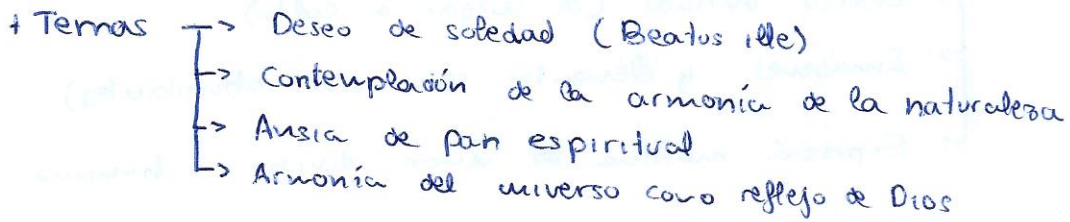 + Temas → Deseo de soledad (Beatus ille)
→ Contemplación de la armonía de la naturaleza
→ Ansia de pan espiritual
→ Armonía del universo como reflejo de Dios